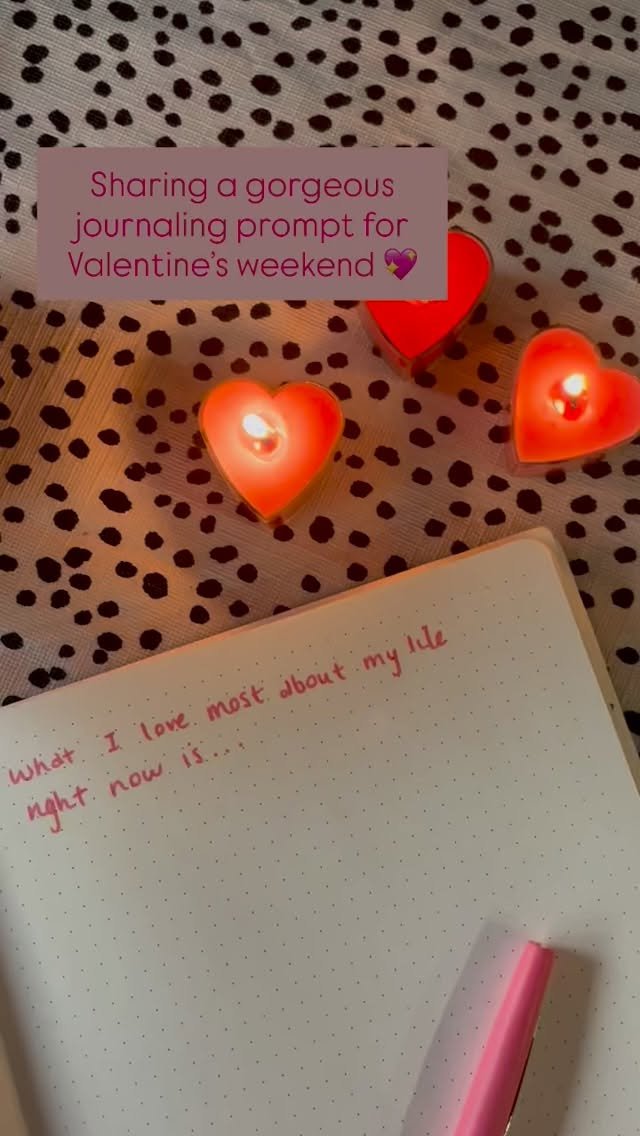 Sharing a gorgeous
journaling prompt for
Valentine's weekend 💖
What I love most about my life
right now is...